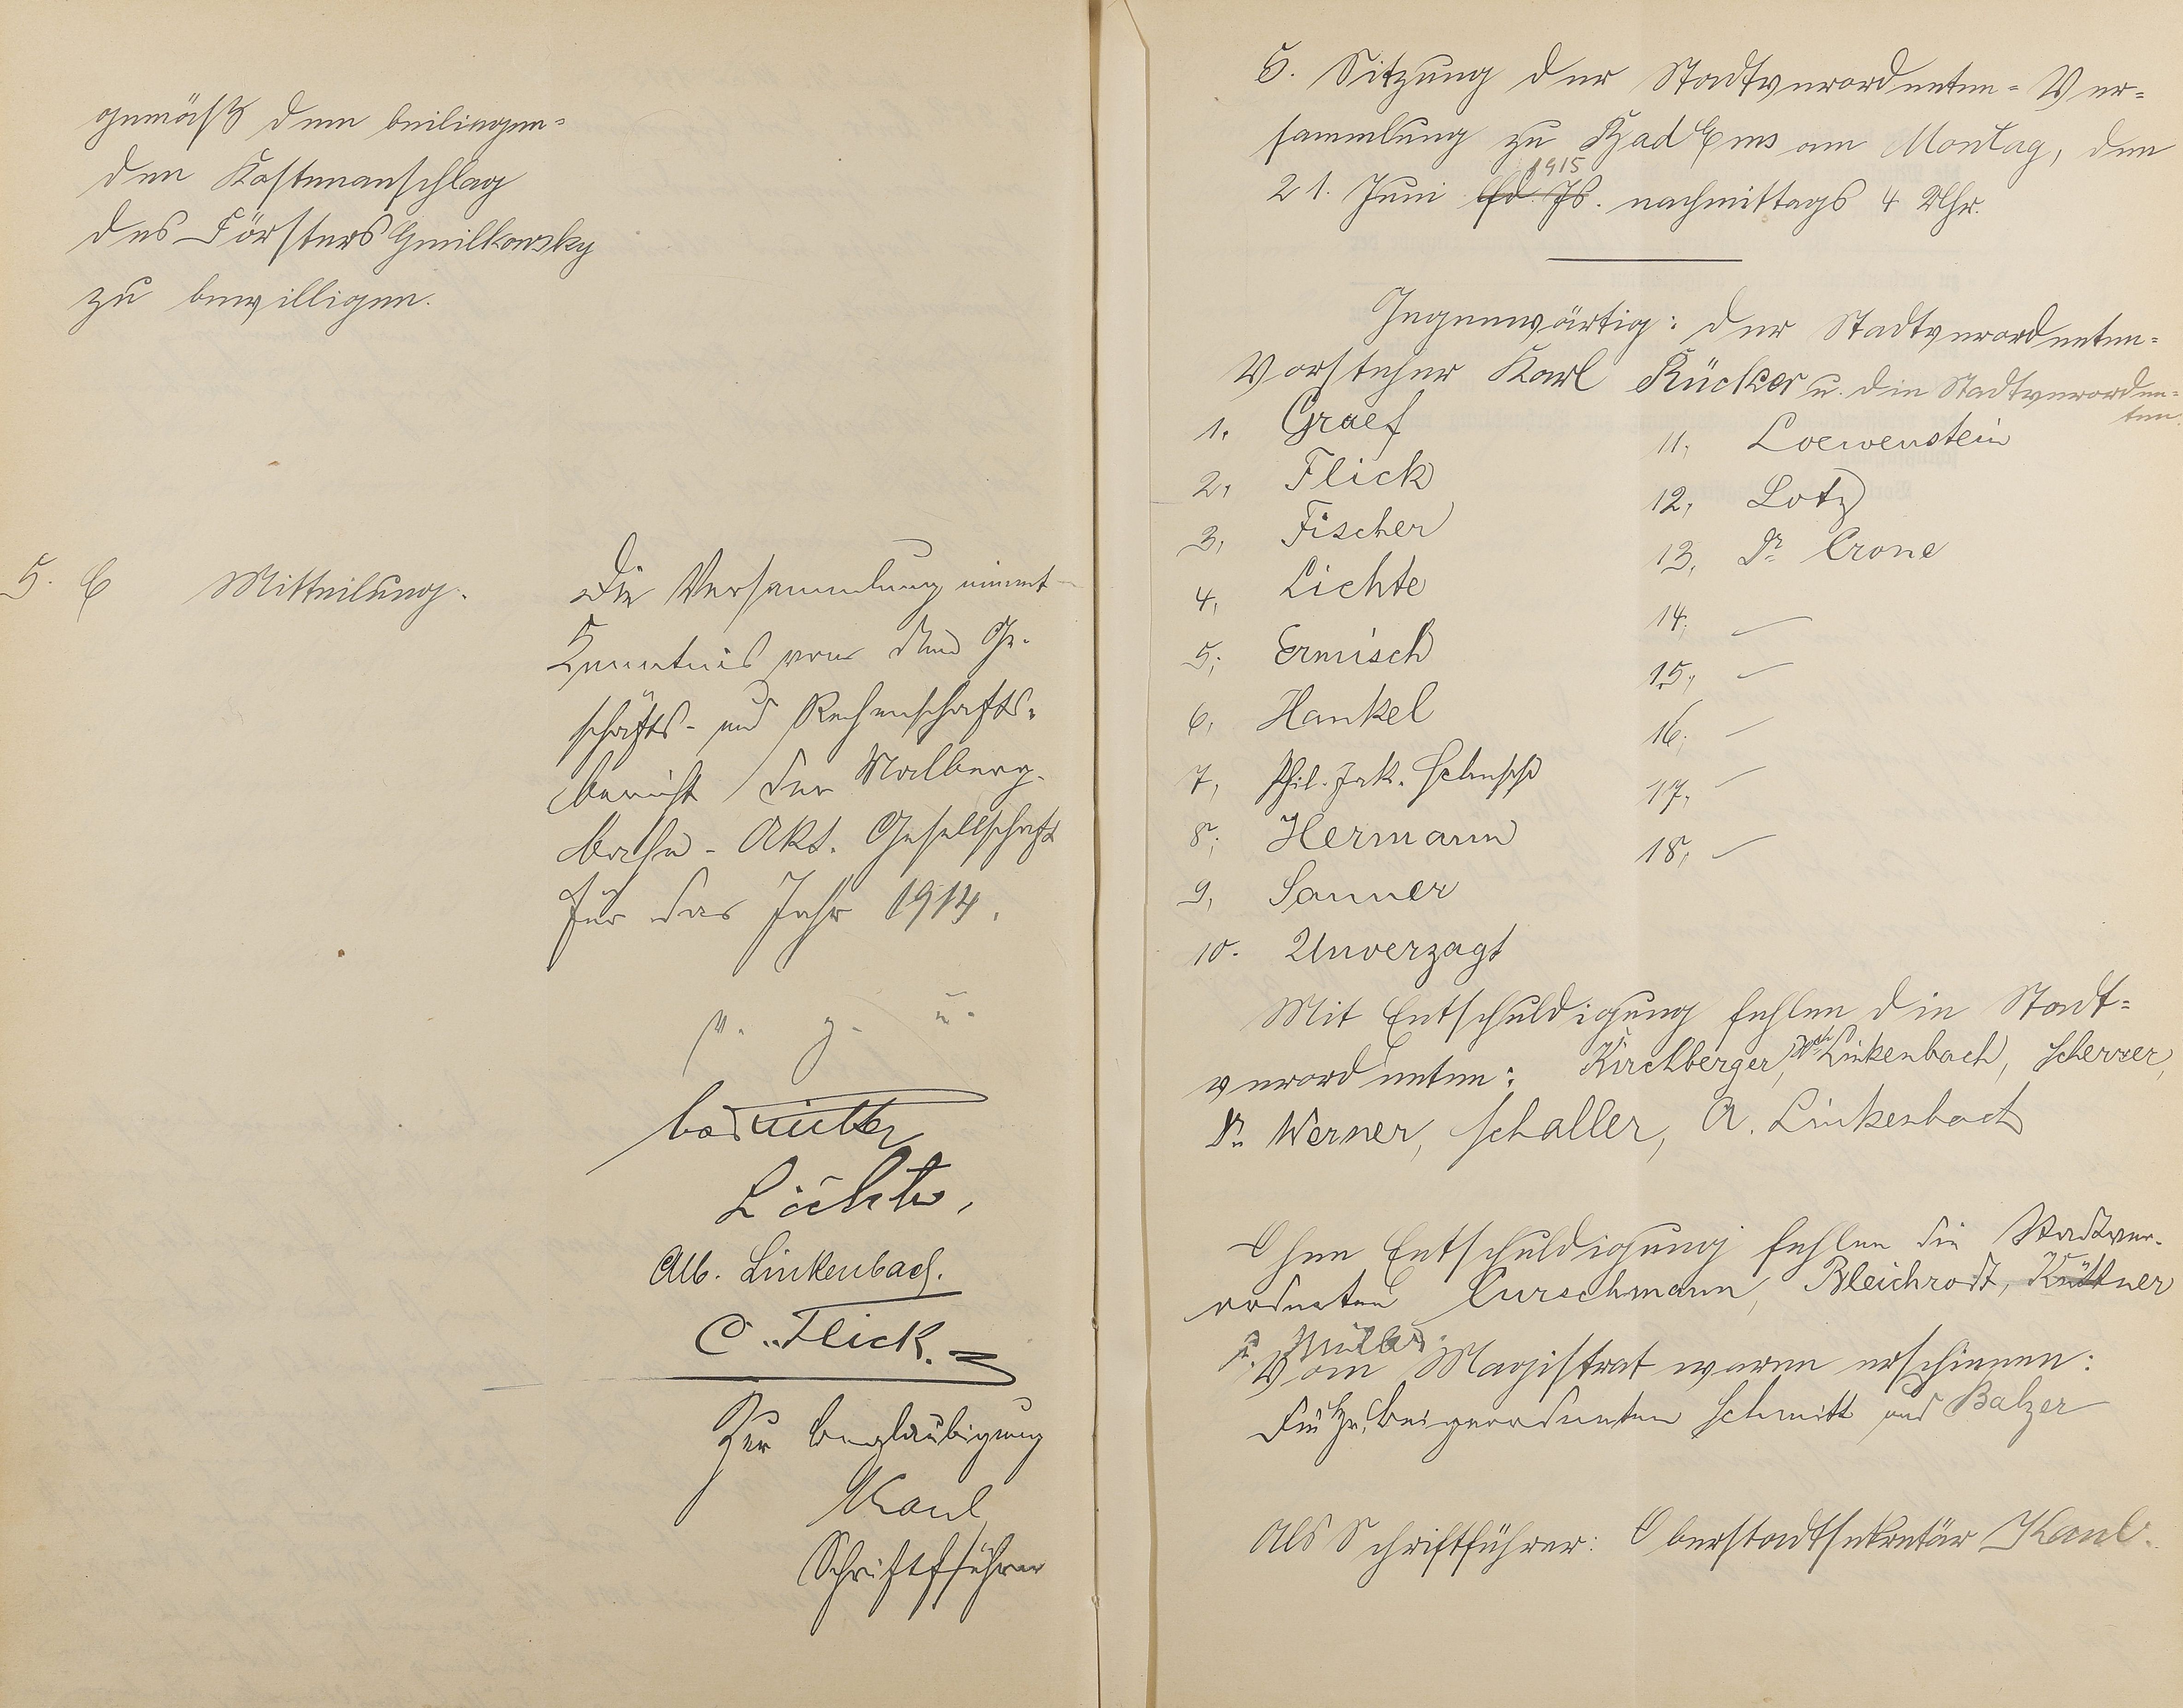 gemäß dem beiliegen-
den Kostenanschlag
des Försters Gmilkowsky
zu bewilligen.
5. 6 Mitteilung.
Die Versammlung nimmt
Kenntnis von dem Ge-
schäfts- und Rechenschafts-
bericht der Malberg-
bahn-Akt. Gesellschaft
für das Jahr 1914.
v. g. u.
Lichte,
Alb. Linkenbach.
C. Flick.
Zur Beglaubigung
Kaul
Schriftführer
6. Sitzung der Stadtverordneten-Ver-
sammlung zu Bad Ems am Montag, den
1915
21. Juni lfd. Js. nachmittags 4 Uhr.
Gegenwärtig: der Stadtverordneten-
Vorsteher Karl Rücker u. die Stadtverordne-
ten
1. Graef
2. Flick
3. Fischer
4. Lichte
5. Ermisch
6. Hankel
7. Phil. Jak.
8. Hermann
9. Sanner
10. Unverzagt
11. Loewenstein
12. Lotz
13. Dr Crone
14. —
15. —
16. —
17. —
18. —
Mit Entschuldigung fehlen die Stadt-
verordneten: Kirchberger, Linkenbach, Scherrer,
Dr. Werner, Schaller, A. Linkenbach
Ohne Entschuldigung fehlen die Stadtver-
ordneten Curschmann, Bleichrodt, Küttner
u. Müller.
Vom Magistrat waren erschienen:
Die Hr. Beigeordneten Schmitt und Balzer
Als Schriftführer: Oberstadtsekretär Kaul.